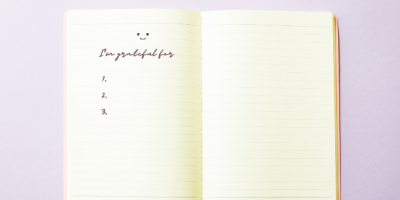 I'm grateful for
1.
2.
3.